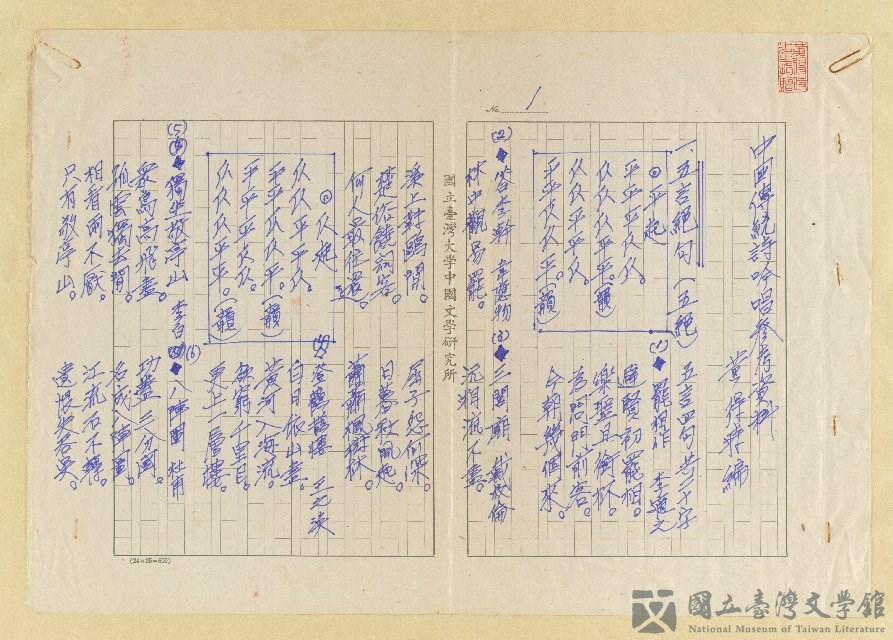 中國傳統詩吟唱參考資料
黃得時編
一、五言絕句(五絕) 五言四句共二十字
◎平起
平平平仄仄。
仄仄仄平平。(韻)
仄仄平平仄。
平平仄仄平。(韻)
(1)◆罷相作 李適之
避賢初罷相。
樂聖且銜杯。
為問門前客。
今朝幾個來。
(2)◆答李幹 韋應物
林中觀易罷。
溪上對鷗閒。
楚俗饒詞客。
何人最往還。
(3)◆三閭廟 戴叔倫
沅湘流不盡。
屈子怨何深。
日暮秋風起。
蕭蕭楓樹林。
◎仄起
仄仄平平仄。
平平仄仄平。(韻)
平平平仄仄。
仄仄仄平平。(韻)
(4)◆登鸛鵲樓 王之渙
白日依山盡。
黃河入海流。
欲窮千里目。
更上一層樓。
(5)◆獨坐敬亭山 李白
眾鳥高飛盡。
孤雲獨去閒。
相看兩不厭。
只有敬亭山。
(6)◆八陣圖 杜甫
功蓋三分國。
名成八陣圖。
江流石不轉。
遺恨失吞吳。
№ 1
國立臺灣大學中國文學研究所
(24×25=600)
國立臺灣文學館
National Museum of Taiwan Literature